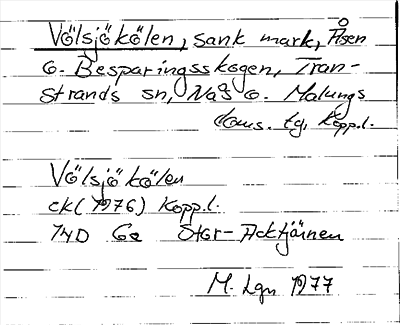 Völsjökölen, sank mark, Åsen
o. Besparingsskogen, Tran-
strands sn, Nås o. Malungs
doms. tg, Kopp.l.
Völsjökölen
ek (1976) Kopp.l.
14D 6a Stor-Acktjärnen
M. Lgn 1977